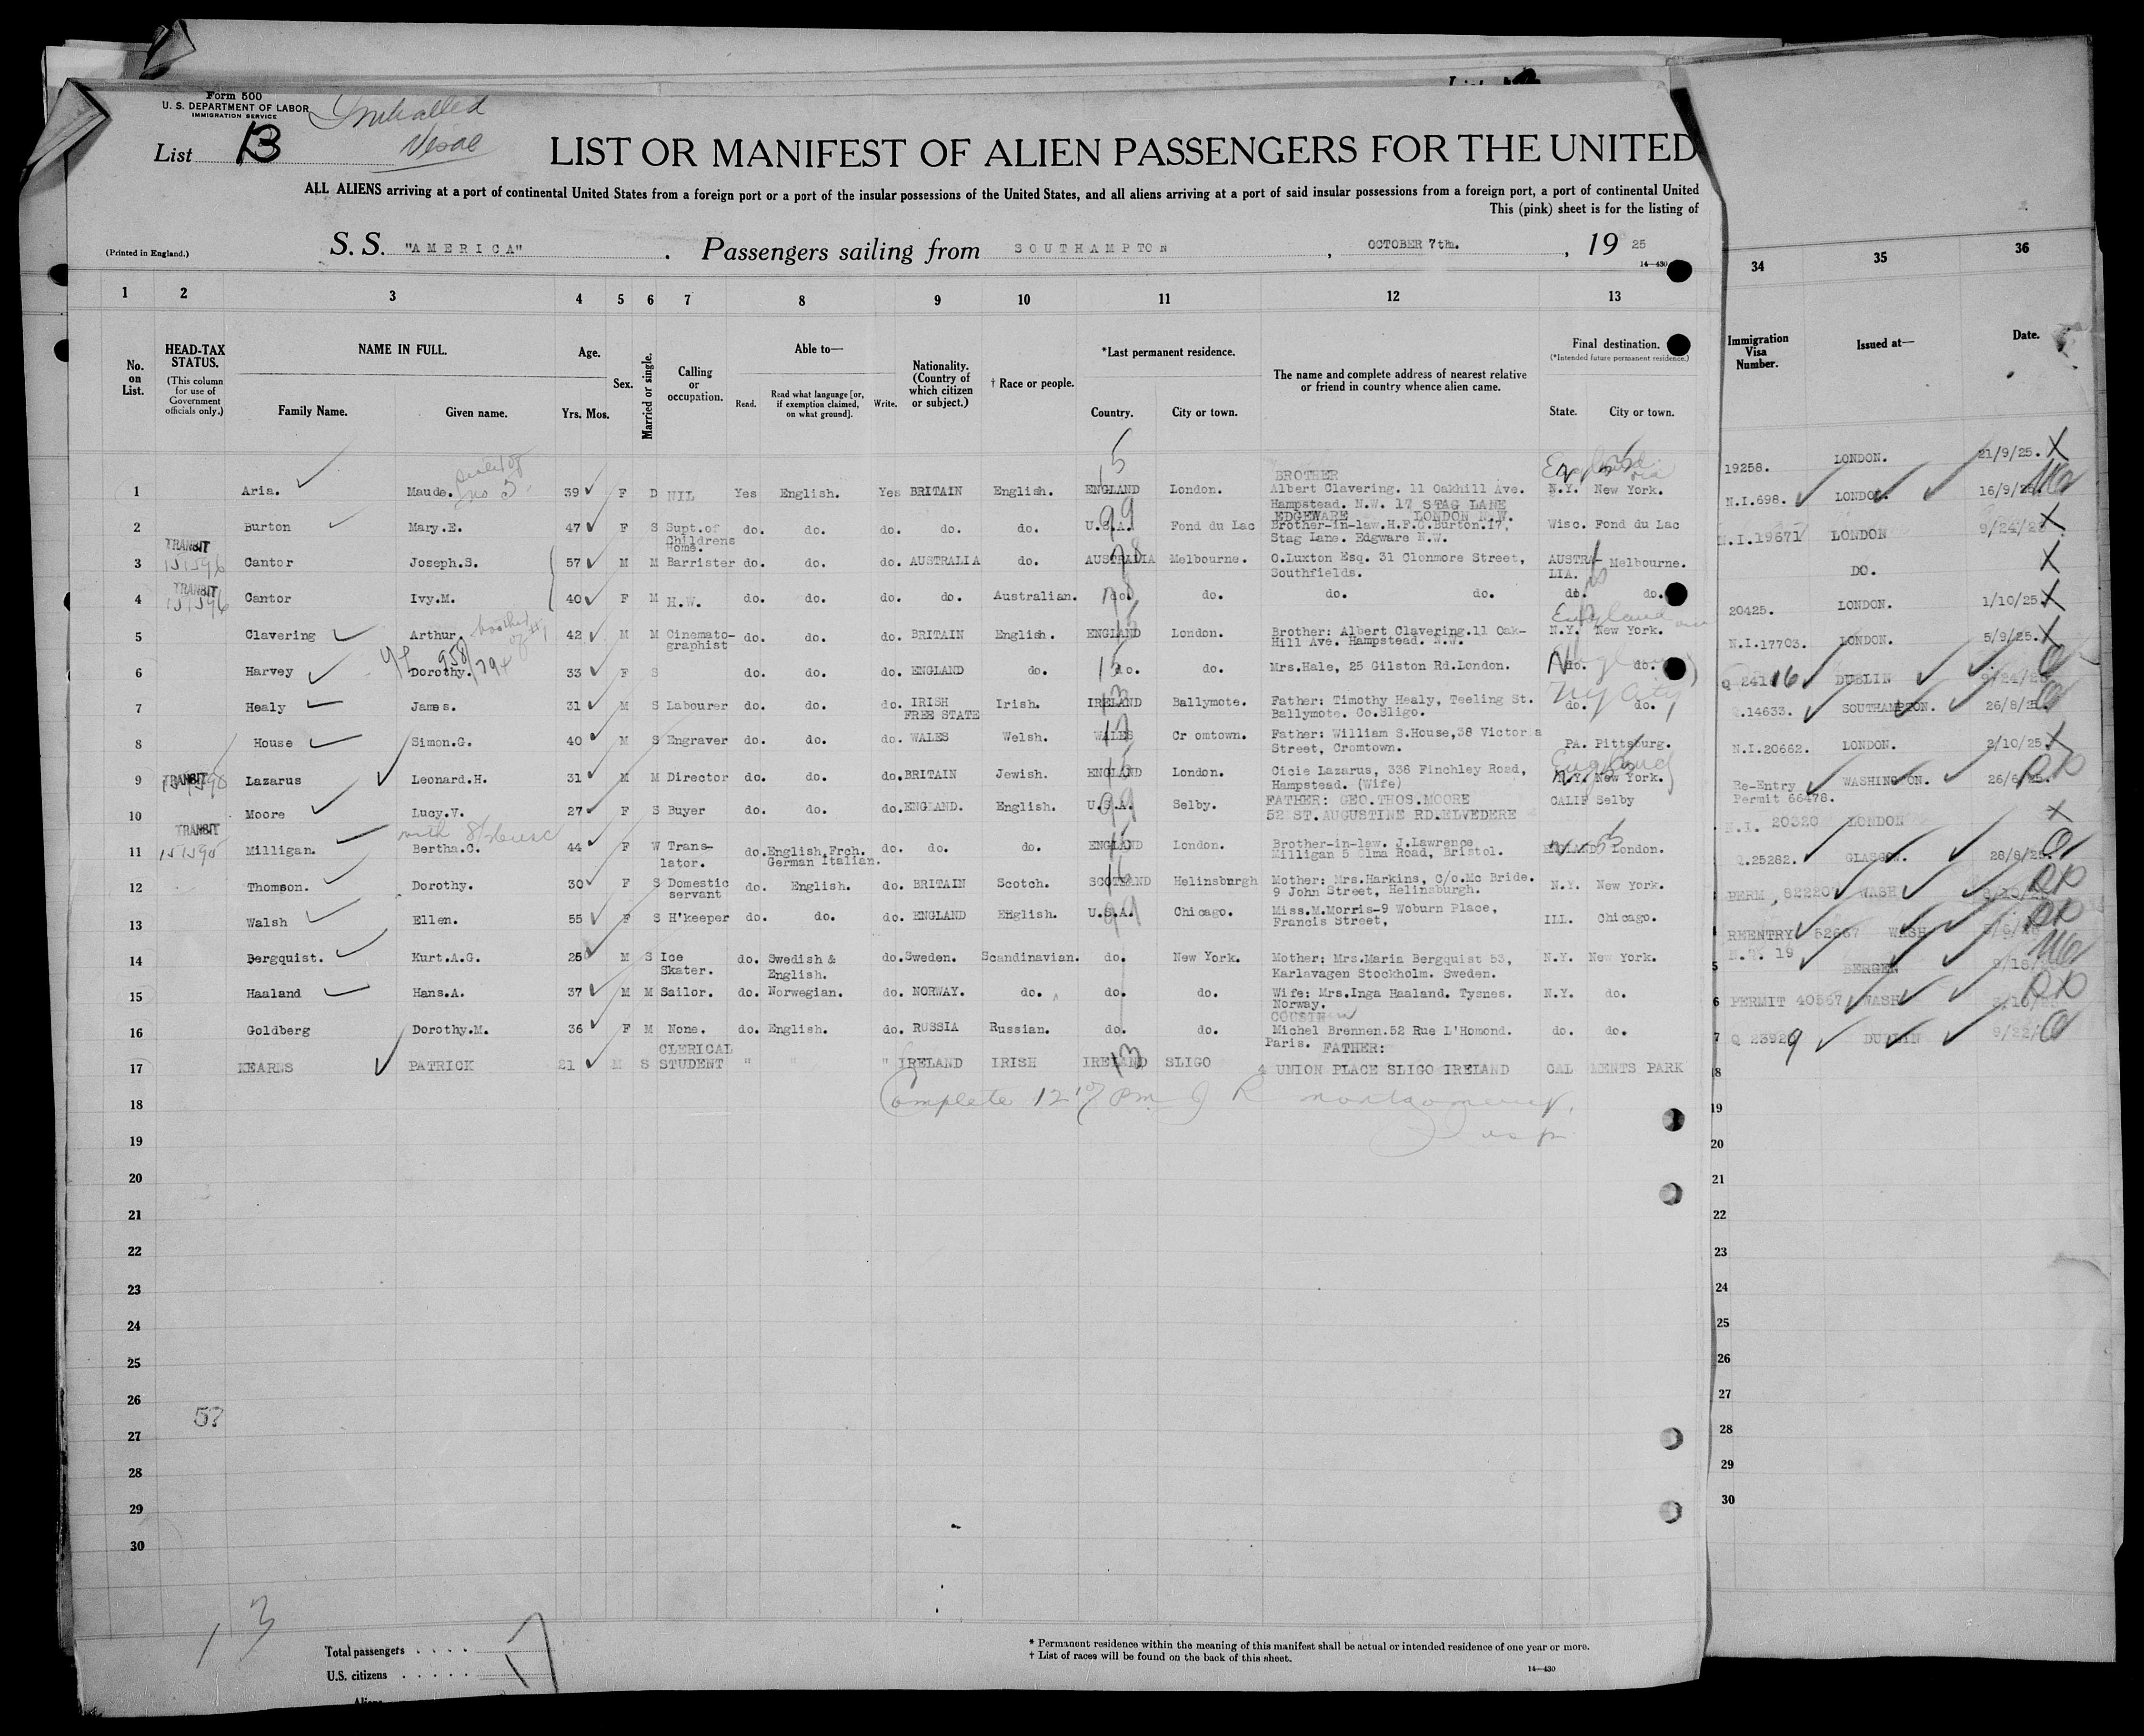 Form 500
U. S. DEPARTMENT OF LABOR
IMMIGRATION SERVICE
Visae
List 13
LIST OR MANIFEST OF ALIEN PASSENGERS FOR THE UNITED
ALL ALIENS arriving at a port of continental United States from a foreign port or a port of the insular possessions of the United States, and all aliens arriving at a port of said insular possessions from a foreign port, a port of continental United
This (pink) sheet is for the listing of
(Printed in England.) S. S. "AMERICA" . Passengers sailing from SOUTHAMPTON , OCTOBER 7th. , 19 25
14—430
1 2 3 4 5 6 7 8 9 10 11 12 13 34 35 36
No. on List. HEAD-TAX STATUS. (This column for use of Government officials only.) NAME IN FULL. Family Name. Given name. Age. Yrs. Mos. Sex. Married or single. Calling or occupation. Able to— Read. Read what language [or, if exemption claimed, on what ground]. Write. Nationality. (Country of which citizen or subject.) † Race or people. *Last permanent residence. Country. City or town. The name and complete address of nearest relative or friend in country whence alien came. Final destination. (*Intended future permanent residence.) State. City or town. Immigration Visa Number. Issued at— Date.
1 Aria. Maude. sister of no 5. 39 F D NIL Yes English. Yes BRITAIN English. ENGLAND London. BROTHER Albert Clavering. 11 Oakhill Ave. Hampstead. N.W. 17 STAG LANE EDGEWARE LONDON N.W. England N.Y. New York. 19258. LONDON. 21/9/25. X
2 Burton Mary.E. 47 F S Supt.of Childrens Home. do. do. do. do. do. U.S.A. 99 Fond du Lac Brother-in-law.H.F.C.Burton.17, Stag Lane. Edgware N.W. Wisc. Fond du Lac N.I.698. LONDON. 16/9/25.
3 TRANSIT Cantor Joseph.S. 57 M M Barrister do. do. do. AUSTRALIA do. AUSTRALIA Melbourne. O.Luxton Esq. 31 Clonmore Street, Southfields. AUSTRA-LIA. Melbourne. N.I.19671 LONDON X
4 TRANSIT Cantor Ivy.M. 40 F M H.W. do. do. do. do. Australian. do. do. do. do. do. do. DO. X
5 Clavering Arthur. brother of #1 42 M M Cinemato-graphist do. do. do. BRITAIN English. ENGLAND London. Brother: Albert Clavering.11 Oak-Hill Ave. Hampstead. N.W. England N.Y. New York. 20425. LONDON. 1/10/25. X
6 Harvey Dorothy. 33 F S do. do. do. ENGLAND do. do. do. Mrs.Hale, 25 Gilston Rd.London. do. do. N.I.17703. LONDON. 5/9/25. X
7 Healy James. 31 M S Labourer do. do. do. IRISH FREE STATE Irish. IRELAND 13 Ballymote. Father: Timothy Healy, Teeling St. Ballymote. Co.Sligo. NY City do. do. DUBLIN
8 House Simon.G. 40 M S Engraver do. do. do. WALES Welsh. WALES Father: William S.House,38 Street, Cromtown. PA. Pittsburg. Q.14633. SOUTHAMPTON.
9 TRANSIT Lazarus Leonard.H. 31 M M Director do. do. do. BRITAIN Jewish. ENGLAND London. Cicie Lazarus, 336 Finchley Road, Hampstead. (Wife) England N.Y. New York. N.I.20662. LONDON. 2/10/25. X
10 Moore Lucy.V. 27 F S Buyer do. do. do. ENGLAND. English. U.S.A. 99 Selby. FATHER: GEO.THOS.MOORE 52 ST.AUGUSTINE RD.BELVEDERE CALIF Selby Re-Entry Permit 66478. WASHINGTON.
11 TRANSIT Milligan. Bertha.C. 44 F W Trans-lator. do. English,Frch. German Italian. do. do. do. ENGLAND London. Brother-in-law. J.Lawrence Milligan 5 Olma Road, Bristol. London. N.I. 20320 LONDON X
12 Thomson. Dorothy. 30 F S Domestic servant do. English. do. BRITAIN Scotch. SCOTLAND Helinsburgh Mother: Mrs.Harkins, C/o.Mc Bride. 9 John Street, Helinsburgh. N.Y. New York. Q.25282. GLASGOW.
13 Walsh Ellen. 55 F S H'keeper do. do. do. ENGLAND English. U.S.A. 99 Chicago. Miss.M.Morris-9 Woburn Place, Francis Street, ILL. Chicago. PERM, 82220 WASH
14 Bergquist. Kurt.A.G. 25 M S Ice Skater. do. Swedish & English. do. Sweden. Scandinavian. do. New York. Mother: Mrs.Maria Bergquist 53, Karlavagen Stockholm. Sweden. N.Y. New York. REENTRY WASH
15 Haaland Hans.A. 37 M M Sailor. do. Norwegian. do. NORWAY. do. do. do. Wife: Mrs.Inga Haaland. Tysnes. Norway. N.Y. do. BERGEN
16 Goldberg Dorothy.M. 36 F M None. do. English. do. RUSSIA Russian. do. do. COUSIN Michel Brennen.52 Rue L'Homond. Paris. do. do. PERMIT 40567 WASH
17 KEARNS PATRICK 21 M S CLERICAL STUDENT " " " IRELAND IRISH IRELAND 13 SLIGO FATHER: 4 UNION PLACE SLIGO IRELAND CAL MENTS PARK Q 23929 DUBLIN
18 Complete 12 PM J R Montgomery, Insp. 18
19 19
20 20
21 21
22 22
23 23
24 24
25 25
26 26
57
27 27
28 28
29 29
30 30
13
Total passengers . . . . 17
U.S. citizens . . . . .
Aliens
* Permanent residence within the meaning of this manifest shall be actual or intended residence of one year or more.
† List of races will be found on the back of this sheet.
14—430